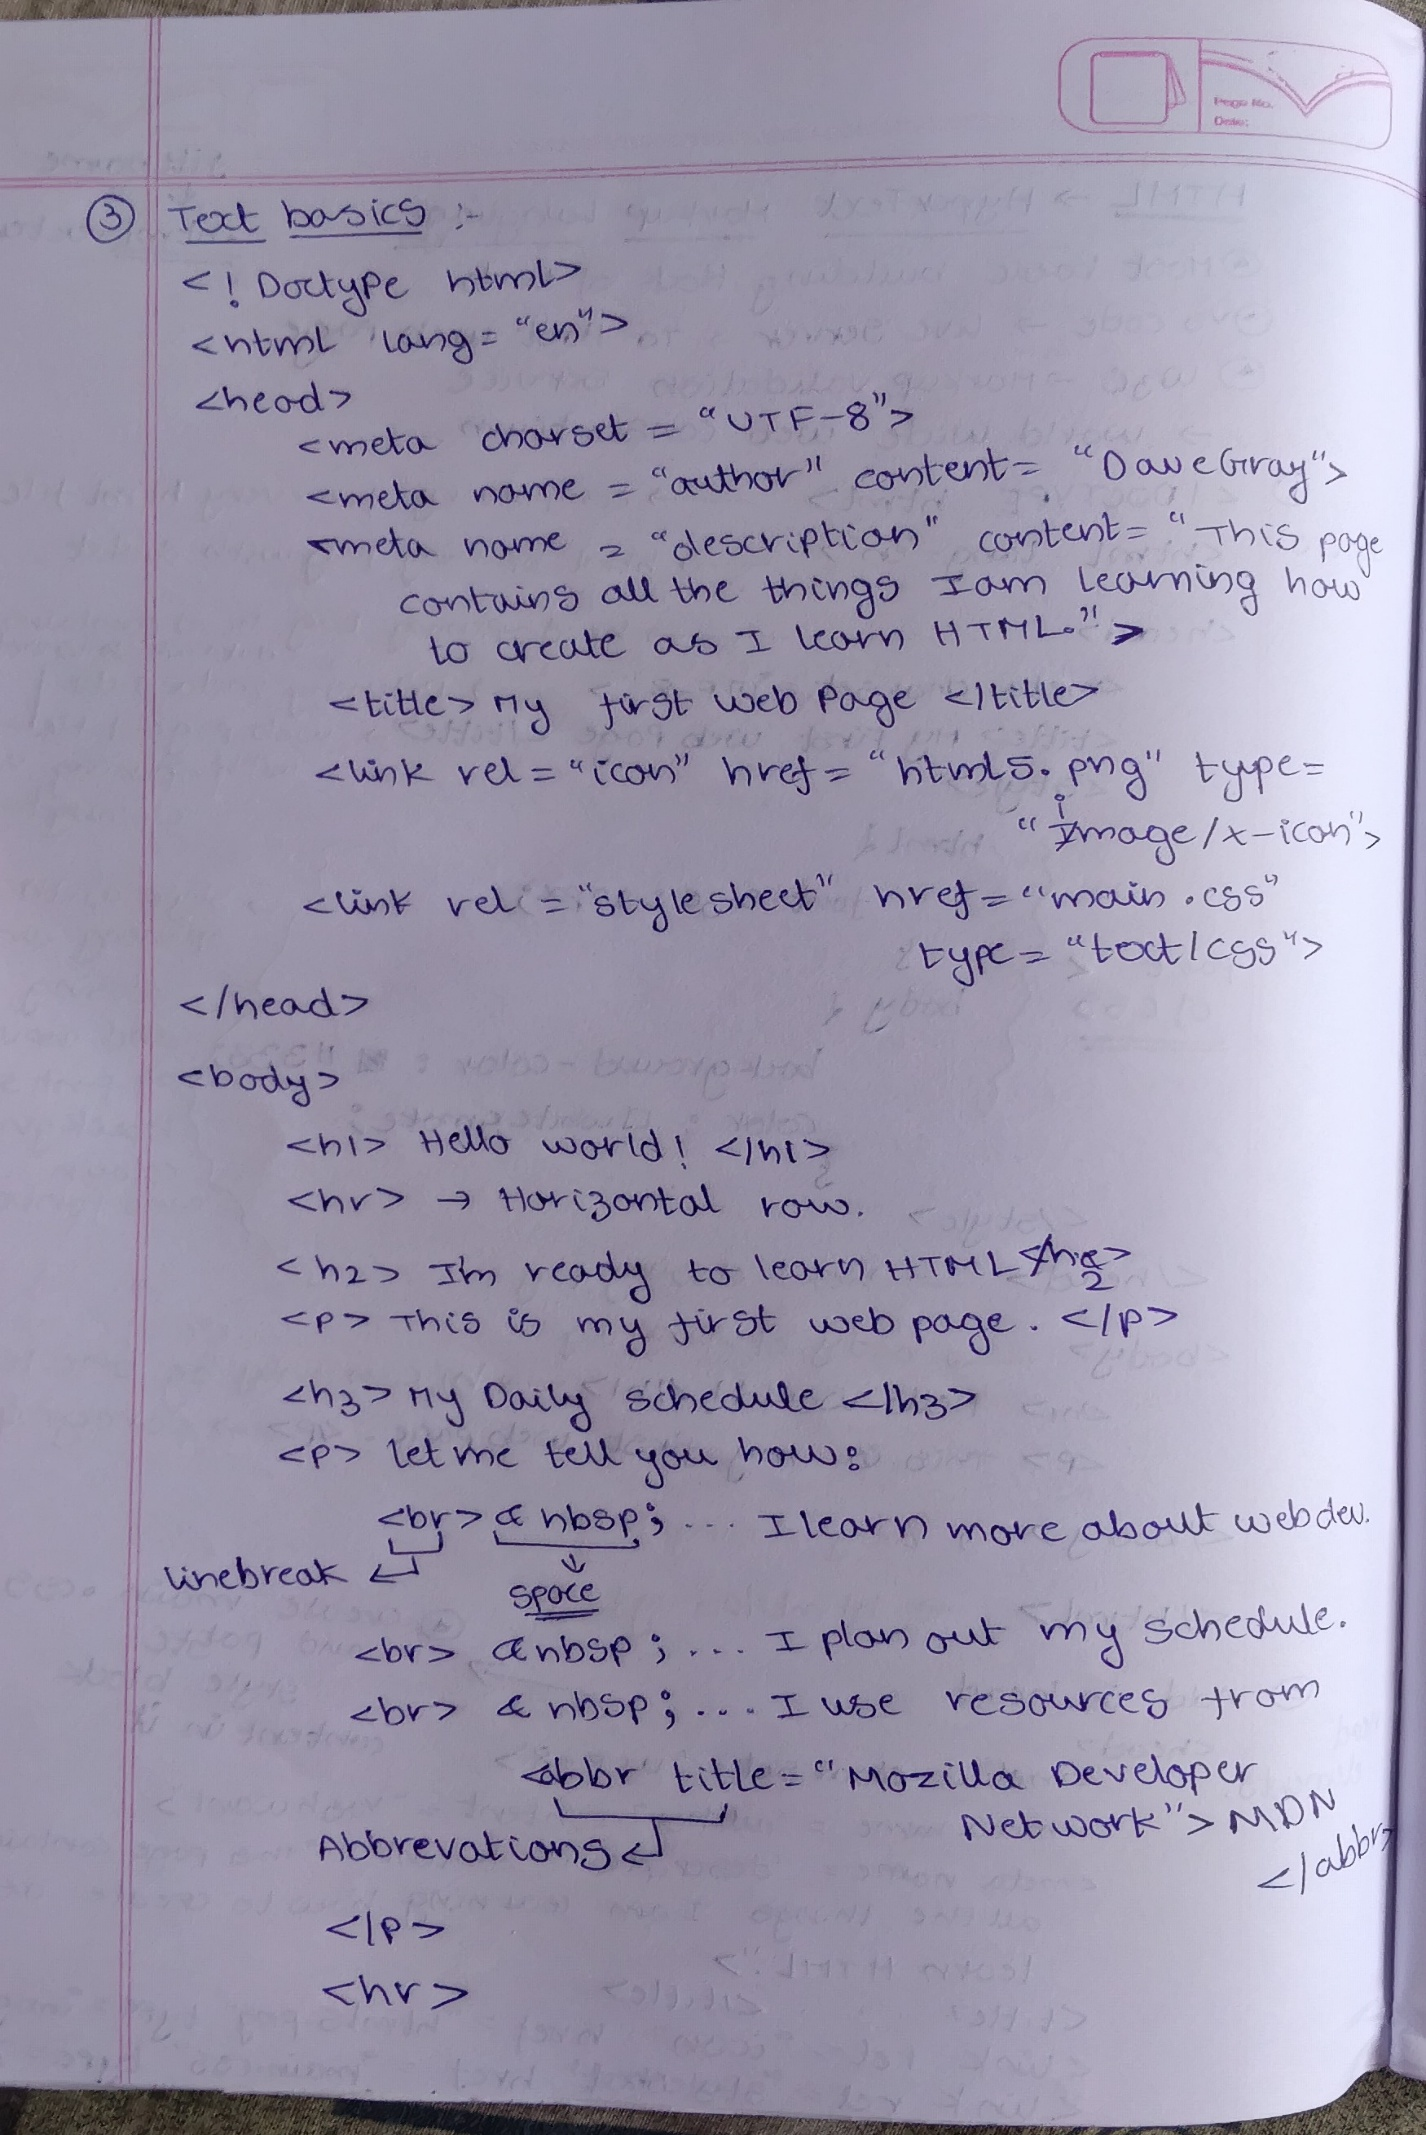 Page No.
Date:
③ Text basics :-
<! Doctype html>
<html lang = "en">
<head>
<meta charset = "UTF-8">
<meta name = "author" content = "Dave Gray">
<meta name = "description" content = "This page
contains all the things I am learning how
to create as I learn HTML.">
<title> My first web Page </title>
<link rel = "icon" href = "html5.png" type =
"image/x-icon">
<link rel = "stylesheet" href = "main.css"
type = "text/css">
</head>
<body>
<h1> Hello world! </h1>
<hr> → Horizontal row.
<h2> I'm ready to learn HTML </h2>
<p> This is my first web page. </p>
<h3> My Daily schedule </h3>
<p> let me tell you how:
<br> &nbsp; ... I learn more about web dev.
linebreak ↵ ↓
space
<br> &nbsp; ... I plan out my schedule.
<br> &nbsp; ... I use resources from
<abbr title = "Mozilla Developer
Network"> MDN
Abbrevations ↵
</abbr>
</p>
<hr>